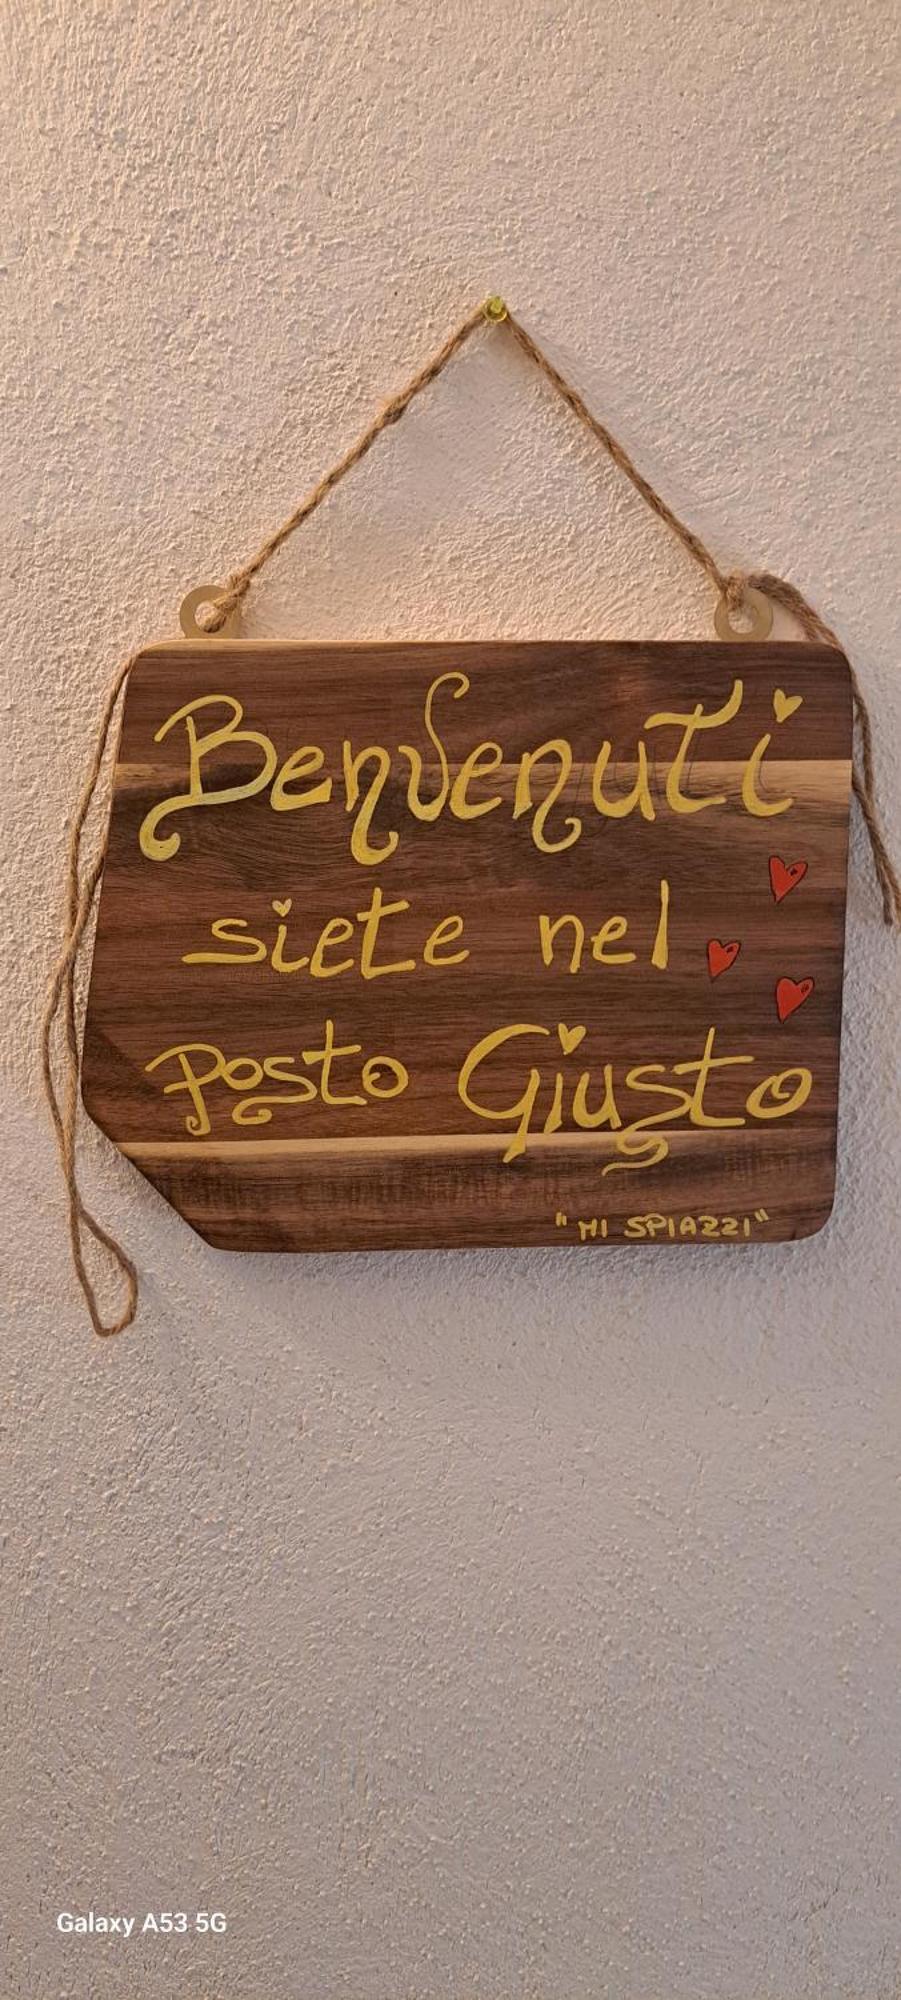 Benvenuti
siete nel
Posto Giusto
"MI SPIAZZI"
Galaxy A53 5G